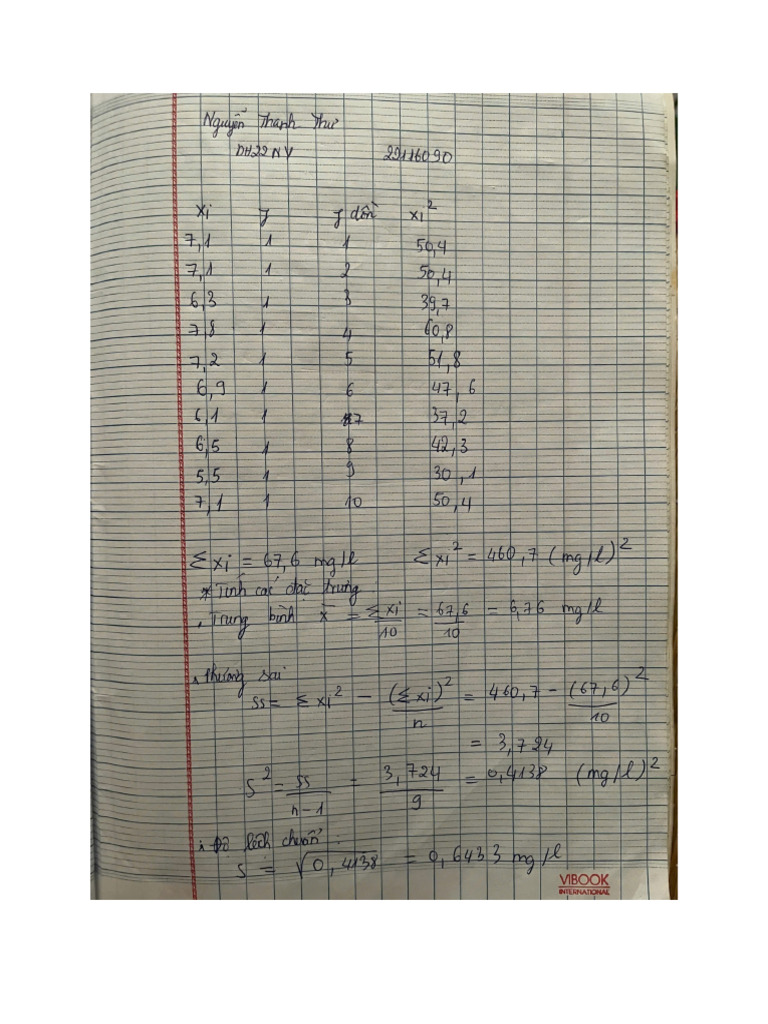 Nguyễn Thanh Thư
DH22NV 22116090
xi y y dồn xi²
7,1 1 1 50,4
7,1 1 2 50,4
6,3 1 3 39,7
7,8 1 4 60,8
7,2 1 5 51,8
6,9 1 6 47,6
6,1 1 7 37,2
6,5 1 8 42,3
5,5 1 9 30,1
7,1 1 10 50,4
Σxi = 67,6 mg/l Σxi² = 460,7 (mg/l)²
* Tính các đặc trưng :
. Trung bình x̄ = Σxi/10 = 67,6/10 = 6,76 mg/l
. Phương sai
ss = Σxi² - (Σxi)²/n = 460,7 - (67,6)²/10
= 3,724
S² = ss/n-1 = 3,724/9 = 0,4138 (mg/l)²
. Độ lệch chuẩn :
S = √0,4138 = 0,6433 mg/l
VIBOOK
INTERNATIONAL